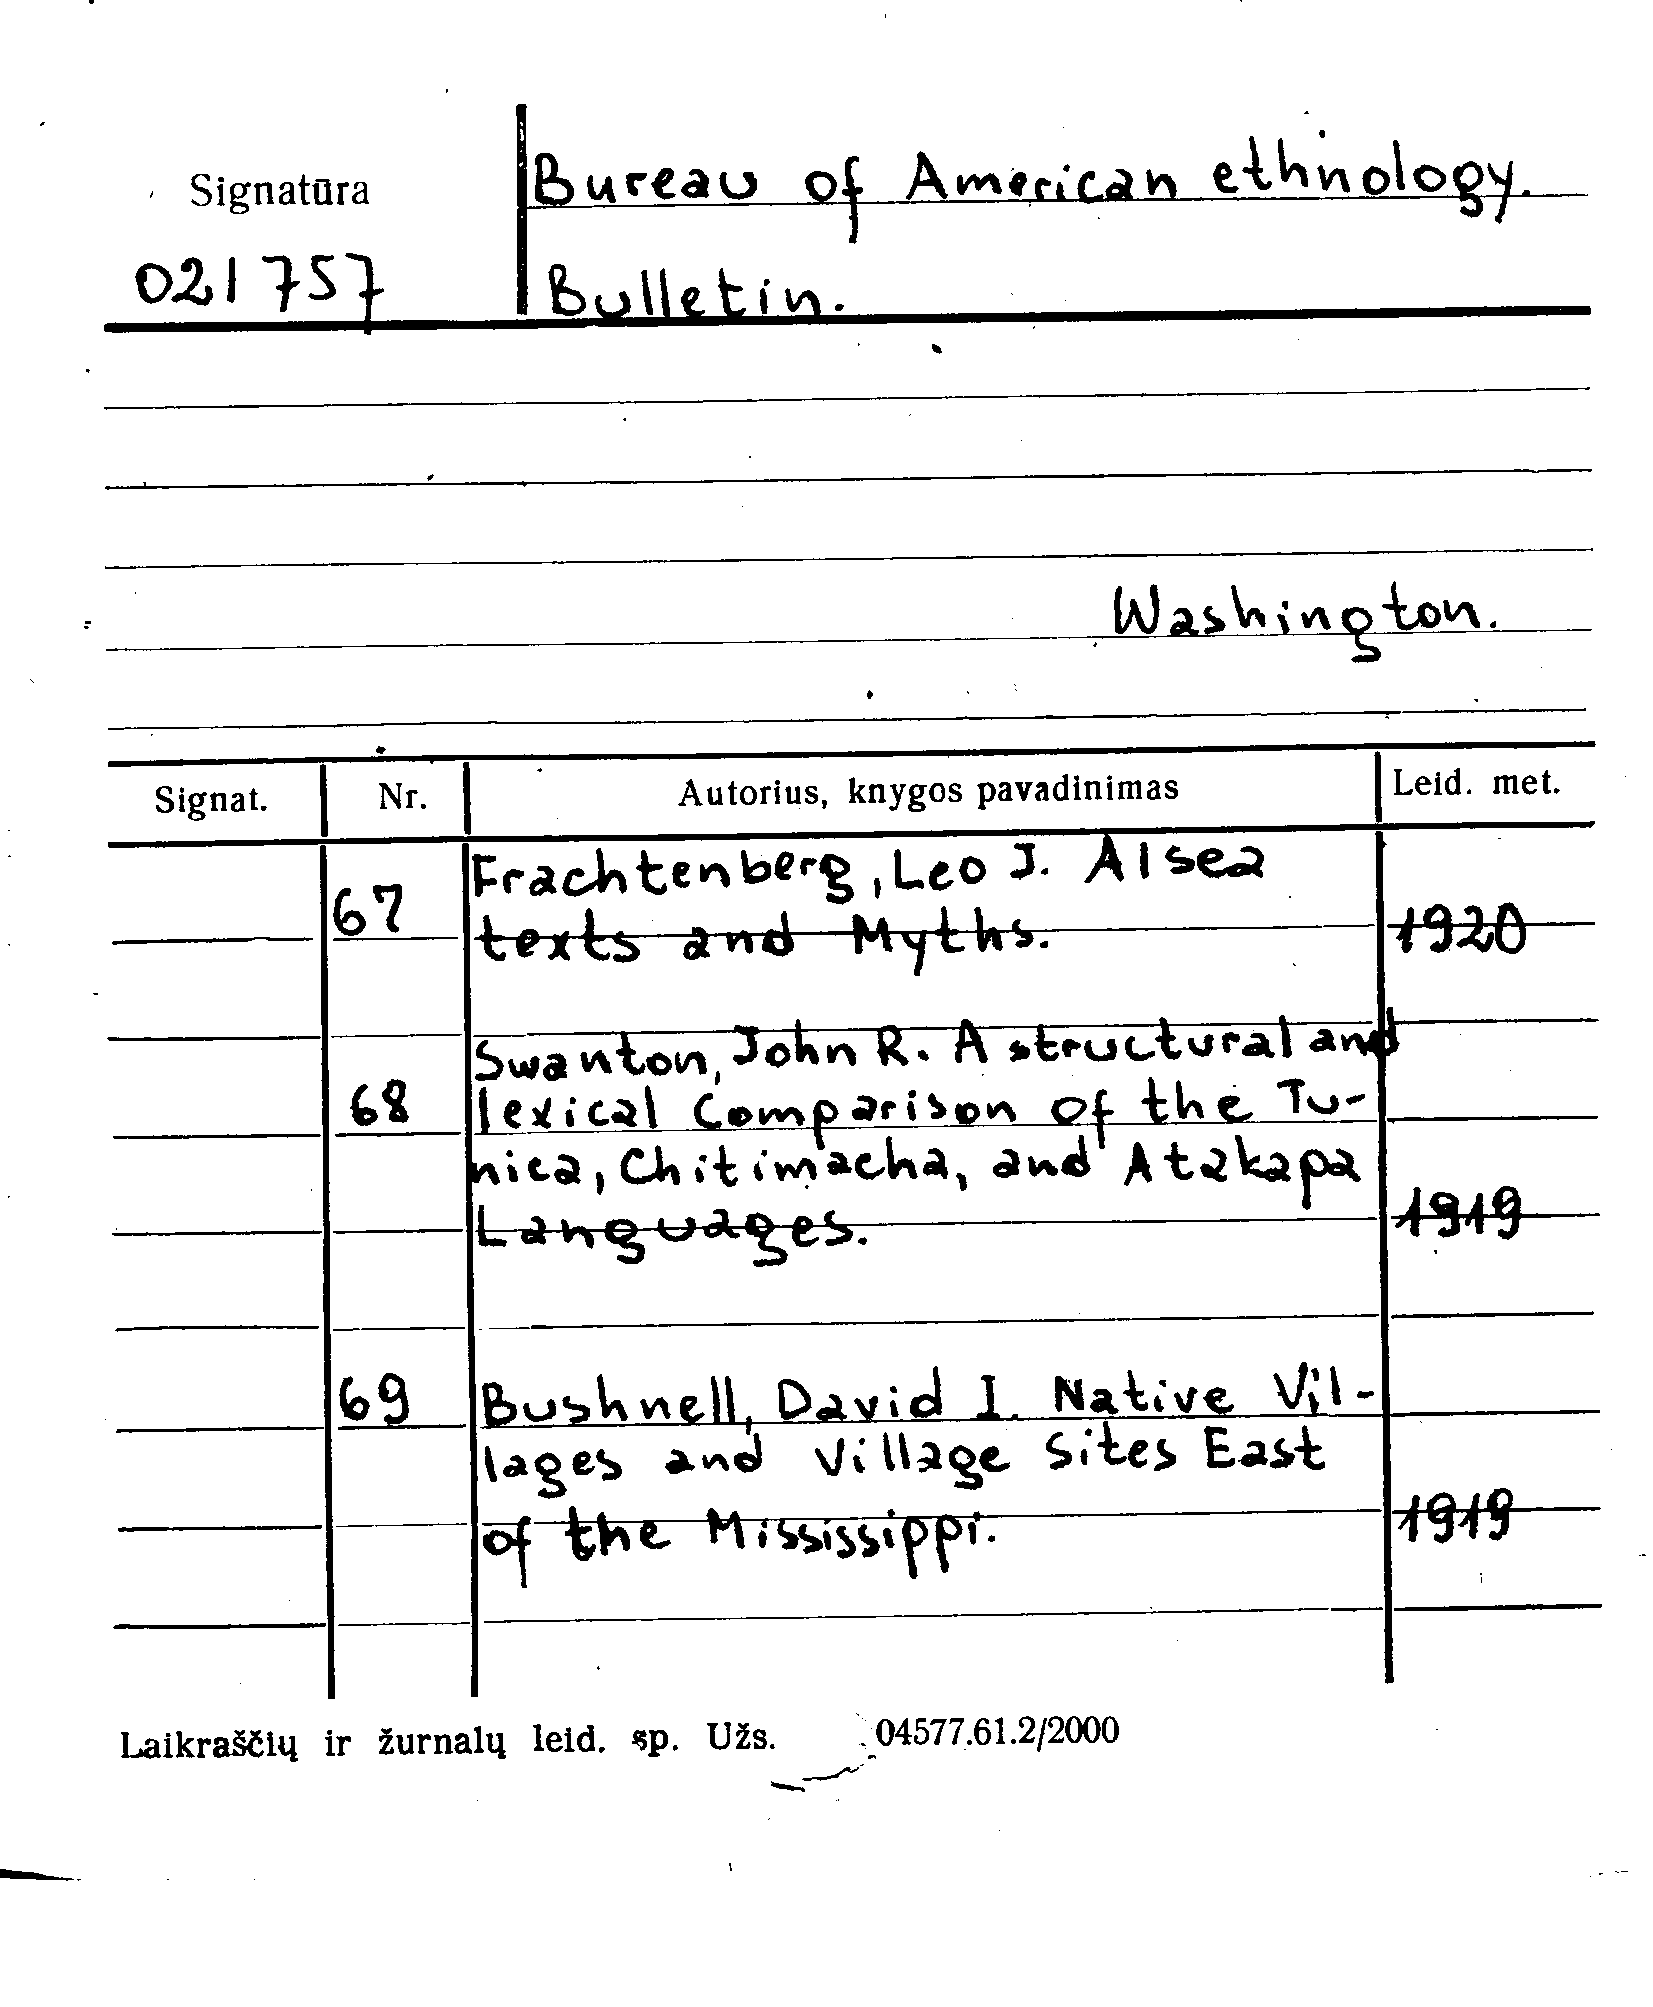 Signatūra
021757
Bureau of American ethnology.
Bulletin.
Washington.
Signat. Nr. Autorius, knygos pavadinimas Leid. met.
67 Frachtenberg, Leo J. Alsea
texts and Myths. 1920
Swanton, John R. A structural and
68 lexical Comparison of the Tu-
nica, Chitimacha, and Atakapa
Languages. 1919
69 Bushnell, David I. Native Vil-
lages and Village Sites East
of the Mississippi. 1919
Laikraščių ir žurnalų leid. sp. Užs. 04577.61.2/2000